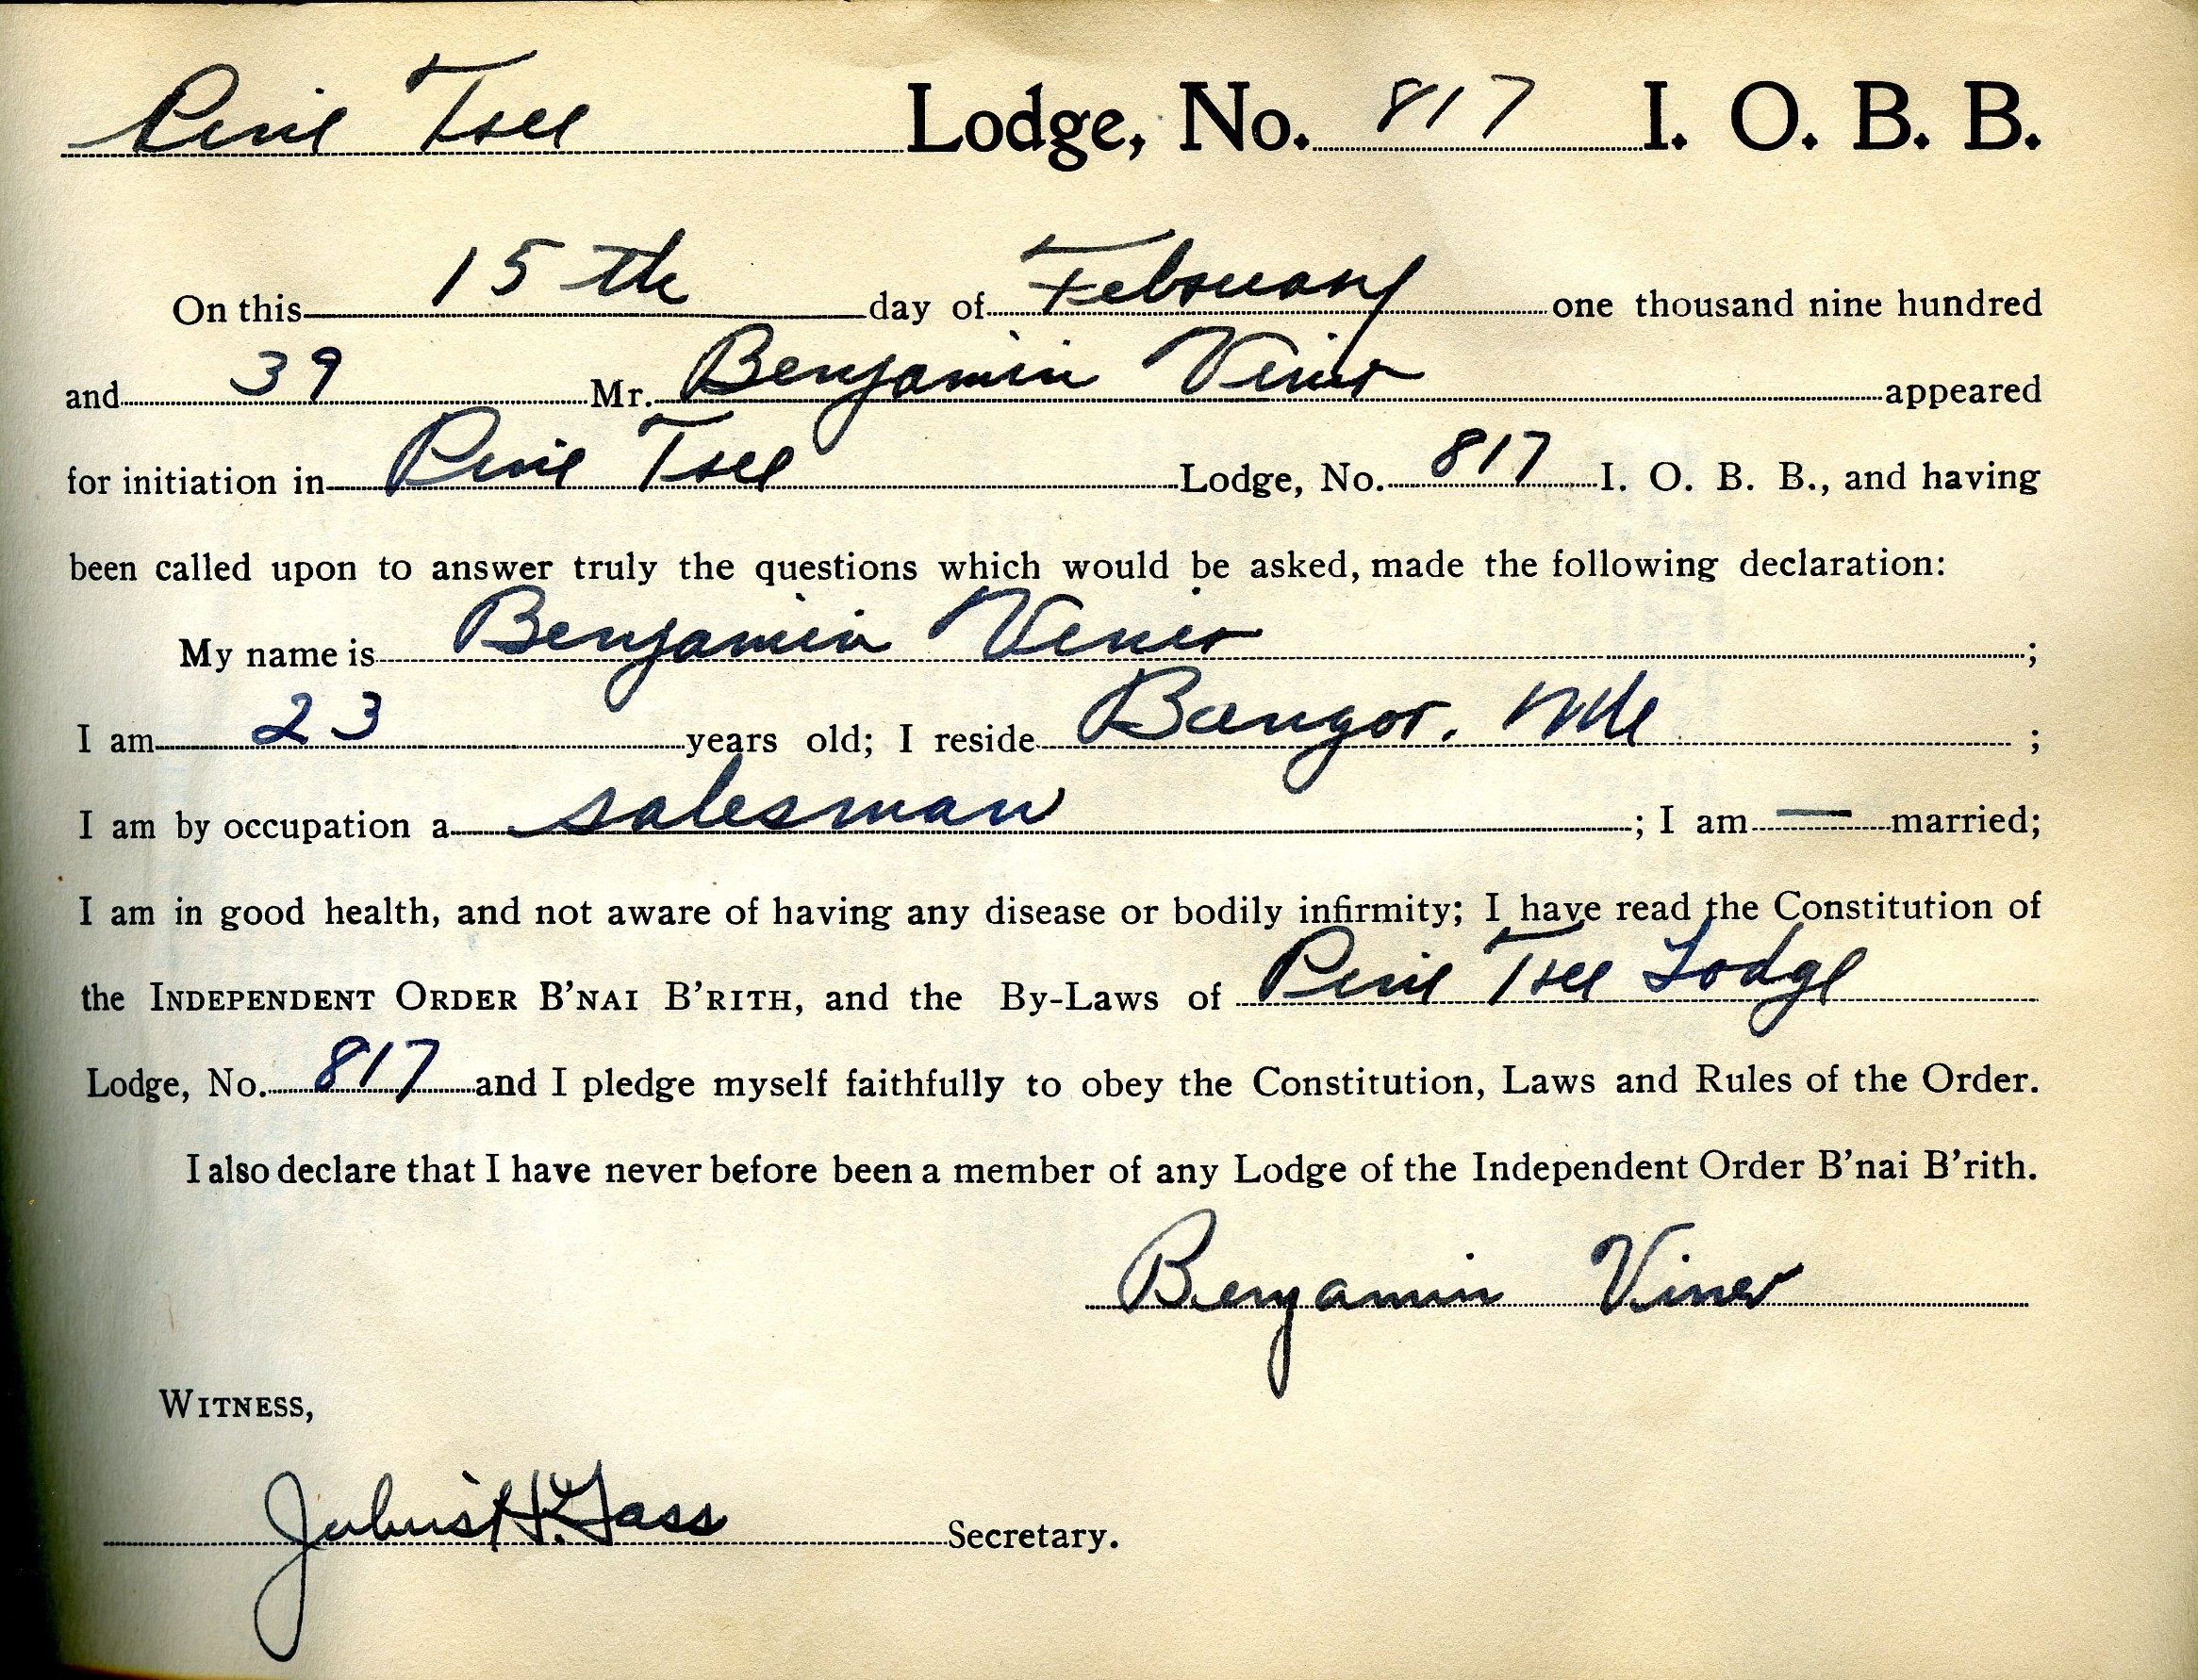 Pine Tree Lodge, No. 817 I. O. B. B.
On this 15th day of February one thousand nine hundred
and 39 Mr. Benjamin Viner appeared
for initiation in Pine Tree Lodge, No. 817 I. O. B. B., and having
been called upon to answer truly the questions which would be asked, made the following declaration:
My name is Benjamin Viner ;
I am 23 years old; I reside Bangor. Me ;
I am by occupation a salesman ; I am — married;
I am in good health, and not aware of having any disease or bodily infirmity; I have read the Constitution of
the INDEPENDENT ORDER B'NAI B'RITH, and the By-Laws of Pine Tree Lodge
Lodge, No. 817 and I pledge myself faithfully to obey the Constitution, Laws and Rules of the Order.
I also declare that I have never before been a member of any Lodge of the Independent Order B'nai B'rith.
Benjamin Viner
WITNESS,
Julius H. Gass Secretary.